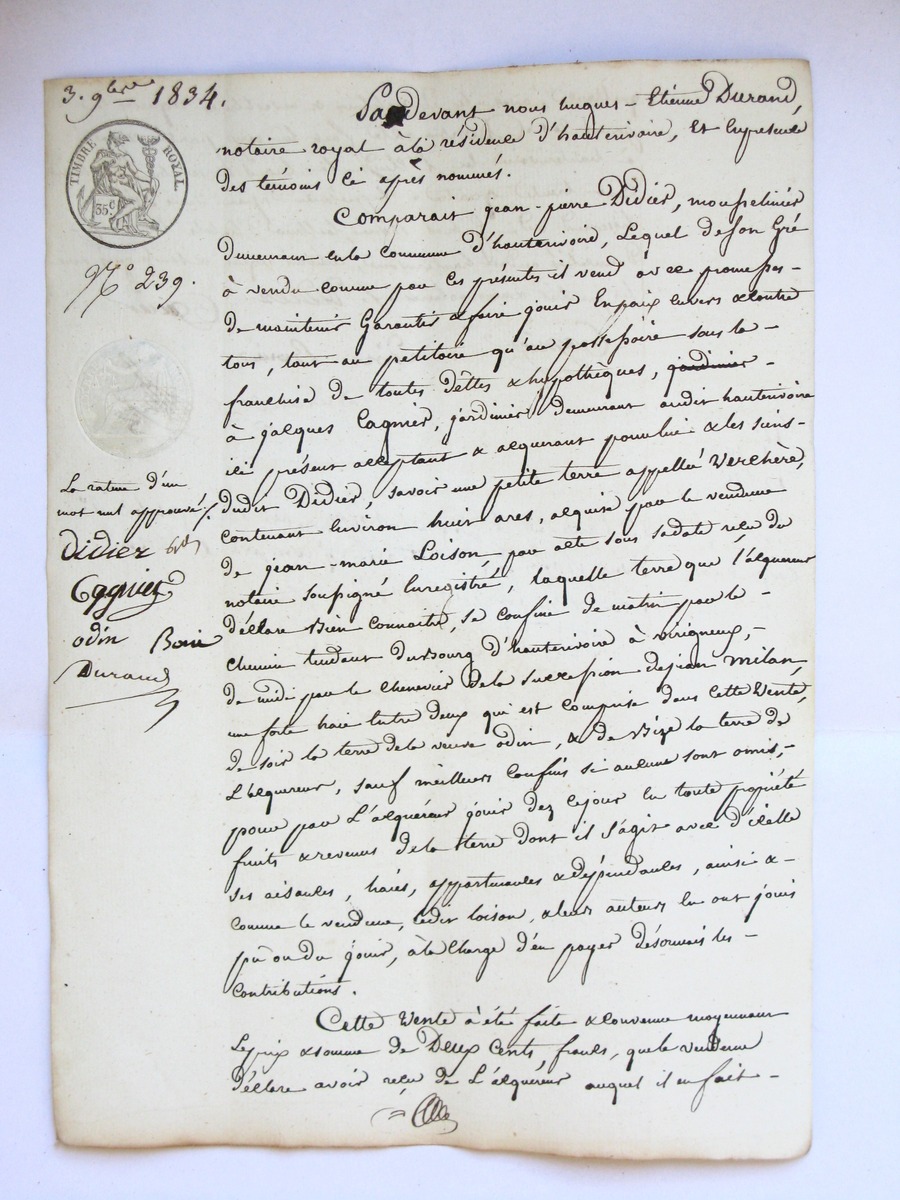 3. 9bre 1834.
TIMBRE ROYAL
35 C
No 239.
Pardevant nous hugues-Etienne Durand,
notaire royal à la résidence d'hauterivoire, Et En présence
des temoins ci après nommés.
Comparait jean-pierre Didier, mousselinier
demeurant en la commune d'hauterivoire, Lequel de son Gré
à vendu comme par ces présentes il vend avec promesse-
de maintenir Garantir & faire jouir En paix Envers & contre
tous, tant au petitoire qu'au possessoire sous la-
franchise de toutes dettes & hypothèques, jardinier-
à jacques Cagnier, jardinier demeurant audit hauterivoire
ici présent acceptant & acquerant pour lui & les siens-
dudit Didier, savoir une petite terre appellée Verchère,
contenant Environ huit ares, acquise par le vendeur
de jean-marie Loison par acte sous sa date reçu du
notaire soussigné Enregistré, laquelle terre que l'acquereur
déclare Bien connaitre, se confine de matin par le-
chemin tendant du Bourg d'hauterivoire à virigneux,-
de midi par le chenevier de la succession de jean milan,
une forte haie Entre deux qui est comprise dans Cette Vente,
de soir la terre de la veuve odin, & de Bize la terre de
L'acquereur, sauf meilleurs confins si aucuns sont omis,-
pour par L'acquéreur jouir dez ce jour En toute propiété
fruits & revenus de la terre dont il s'agit avec d'icelle
ses aisances, haies, appartenances & dépendances, ainsi &-
comme le vendeur, ledit loison, & leurs auteurs En ont joui
pû ou du jouir, à la Charge d'en payer désormais les-
contributions.
Cette Vente à été faite & convenue moyennant
Le prix & somme de Deux Cents, francs, que le vendeur
déclare avoir reçu de L'acquéreur auquel il en fait-
La rature d'un
mot nul approuvé./.
Didier
Cagnier
odin Bonie
Durand